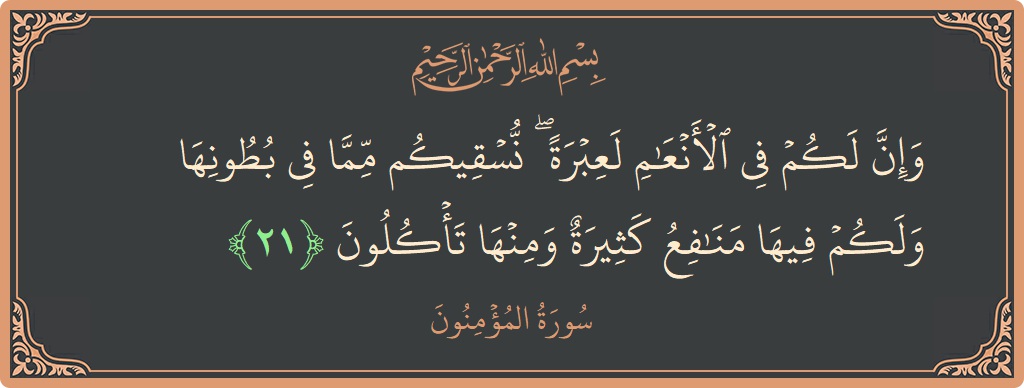 بِسْمِ اللَّهِ الرَّحْمَٰنِ الرَّحِيمِ
وَإِنَّ لَكُمْ فِي ٱلْأَنْعَٰمِ لَعِبْرَةً ۖ نُّسْقِيكُم مِّمَّا فِي بُطُونِهَا
وَلَكُمْ فِيهَا مَنَٰفِعُ كَثِيرَةٌ وَمِنْهَا تَأْكُلُونَ ﴿٢١﴾
سُورَةُ المُؤْمِنُونَ